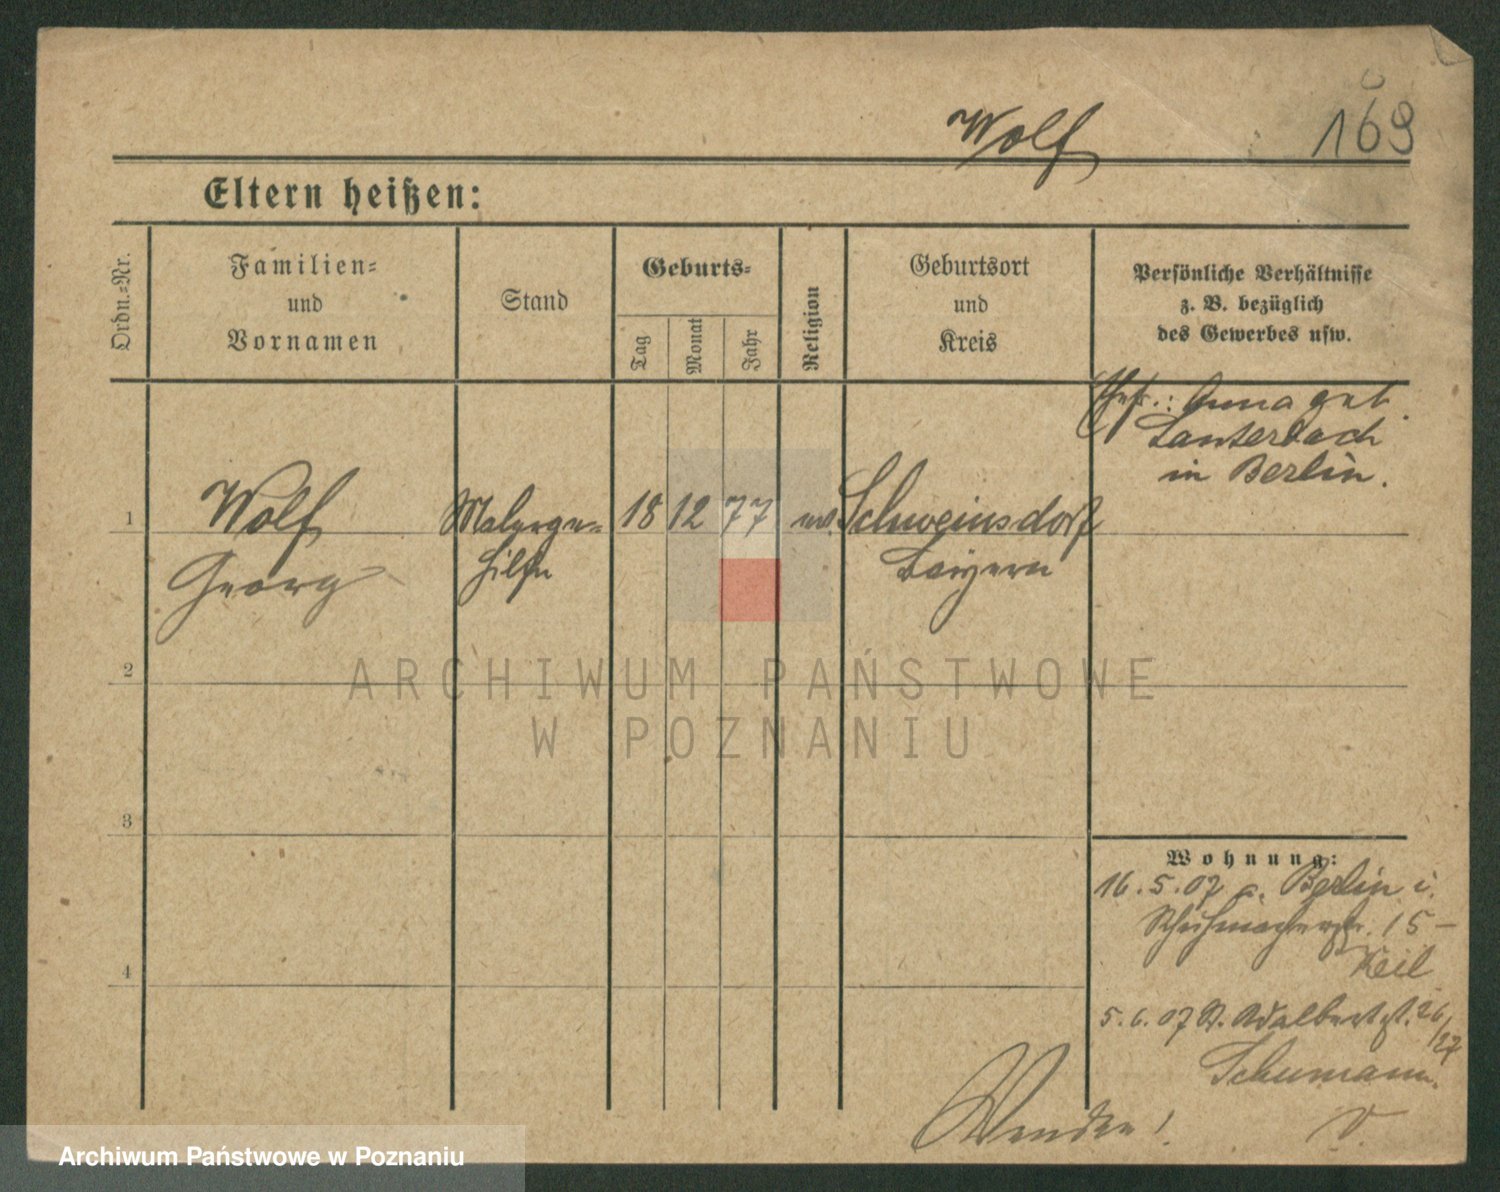 Wolf 169
Eltern heißen:
Ordn.-Nr.
Familien-
und
Vornamen
Stand
Geburts-
Tag
Monat
Jahr
Religion
Geburtsort
und
Kreis
Persönliche Verhältnisse
z. B. bezüglich
des Gewerbes usw.
Anna geb.
Lauterbach
in Berlin.
1
Wolf
Georg
Malerge-
hilfe
18 12 77
Schweinsdorf
Baiyern
2
ARCHIWUM PAŃSTWOWE
W POZNANIU
3
Wohnung:
16.5.07 a. Berlin i.
Schuhmacherstr. 15 -
Keil
4
5.6.07 St. Adalbertst. 26/27
Schumann.
Wenden!
v.
Archiwum Państwowe w Poznaniu